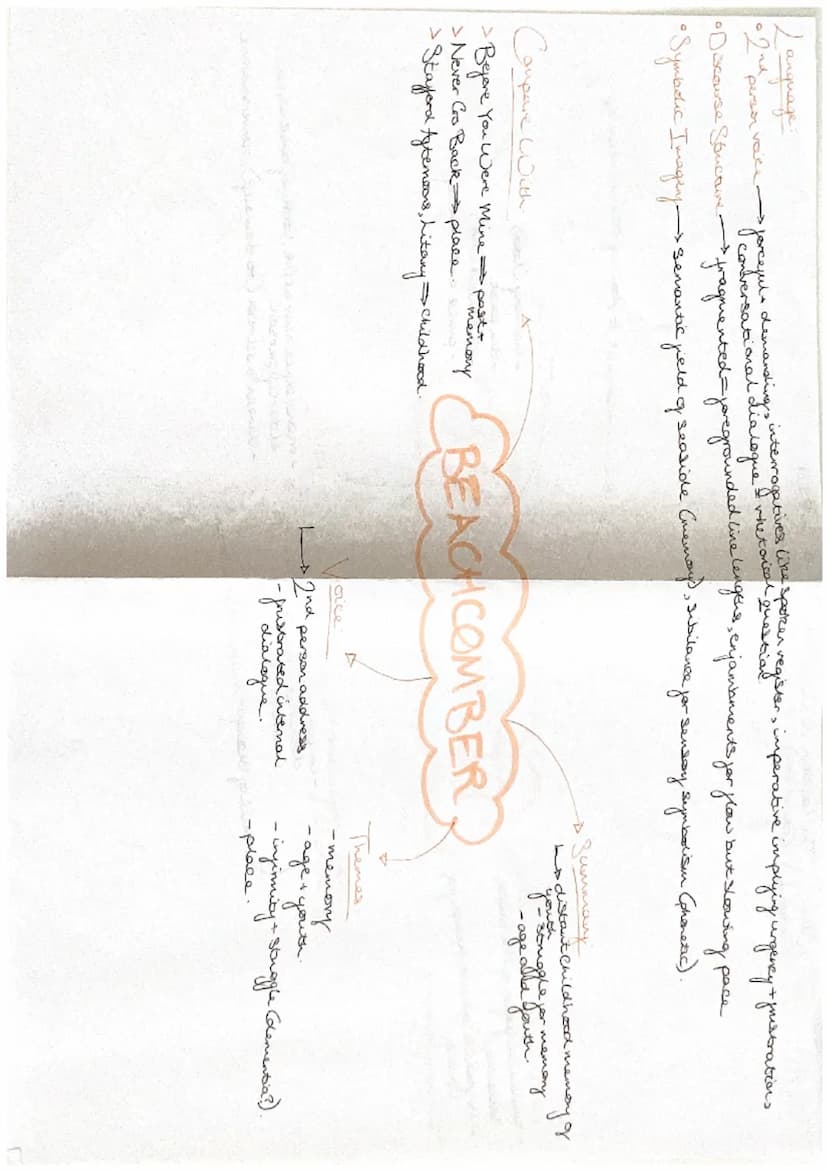 Language:
• 2nd person voice → forceful + demanding, interrogatives like spoken register, imperative implying urgency + frustrations
conversational dialogue & rhetorical question
• Discourse Structure → fragmented = foregrounded line lengths, enjambments for flow but slowing pace
• Symbolic Imagery → semantic field of seaside (memory), sibilance for sensory symbolism (phonetic).
Compare With:
> Before You Were Mine ⇒ past + memory
> Never Go Back ⇒ place.
> Stafford Afternoons, Litany ⇒ childhood.
BEACHCOMBER
Summary
↳ distant childhood memory of
youth
- struggle for memory
- age and youth.
Voice:
↳ 2nd person address
- frustrated internal
dialogue.
Themes
- memory
- age + youth.
- infirmity + struggle (dementia?).
- place.